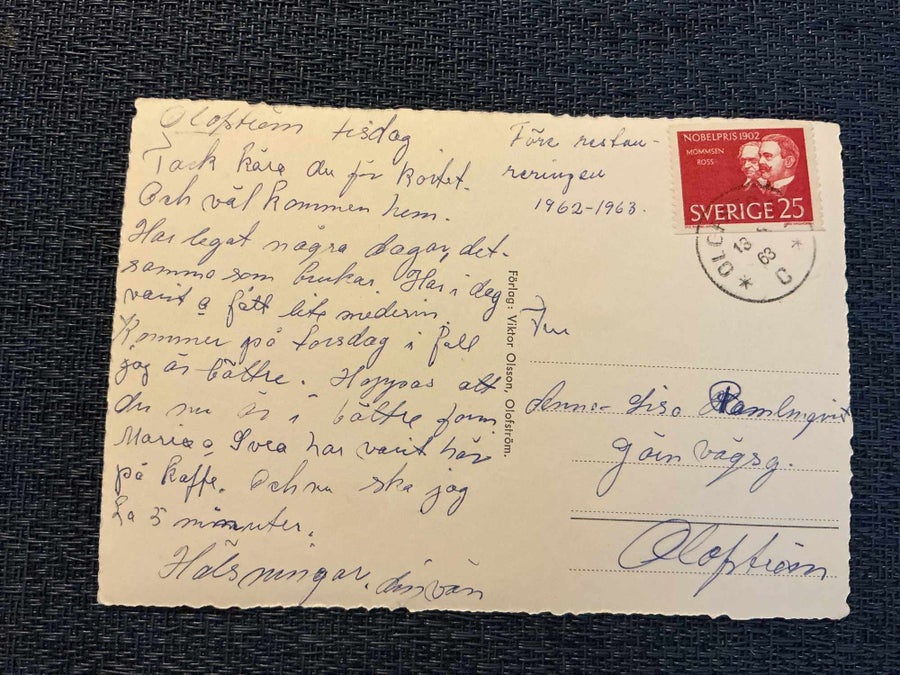 Olofström tisdag
Tack kära du för kortet.
Och väl kommen hem.
Har legat några dagar, det-
samma som brukar. Har i dag
varit o fått lite medesin
Kommer på torsdag i fall
jag är bättre. Hoppas att
du nu är i bättre form
Maria o Svea har varit här
på kaffe. Och nu ska jag
ta 5 minuter.
Hälsningar. din vän
Före restau-
reringen
1962-1963.
NOBELPRIS 1902
MOMMSEN
ROSS
SVERIGE 25
13
63
C
Förlag: Viktor Olsson, Olofström.
Fru
Lisa
vägsg.
Olofström